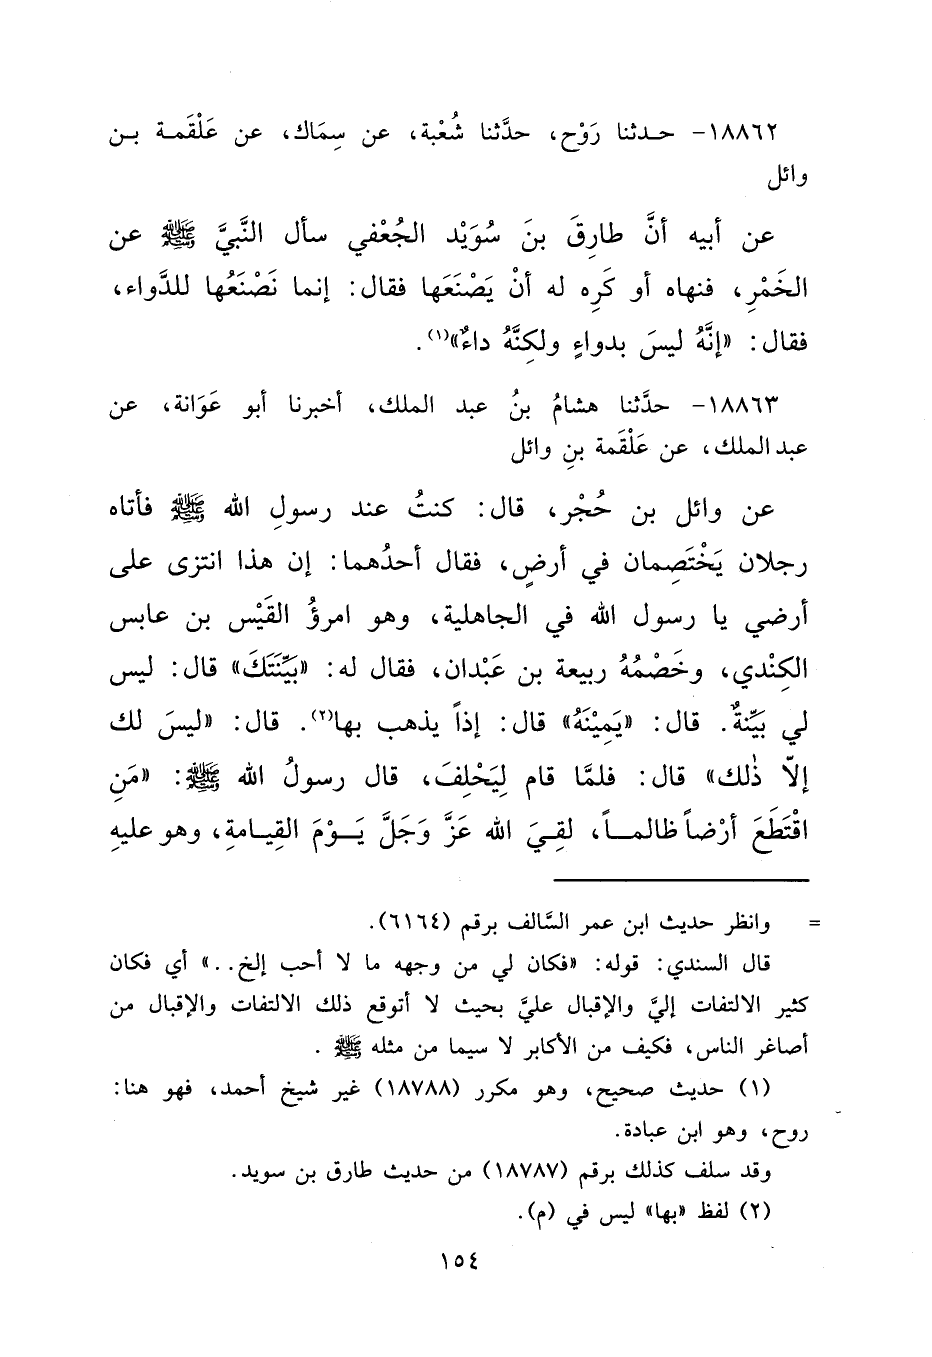 ١٨٨٦٢- حـدثنا رَوْح، حدَّثنا شُعْبة، عن سِمَاك، عن عَلْقَمـة بـن
وائل
عن أبيه أنَّ طارِقَ بنَ سُوَيْد الجُعْفي سأل النَّبيَّ ﷺ عن
الخَمْرِ، فنهاه أو كَرِه له أنْ يَصْنَعَها فقال: إنما نَصْنَعُها للدَّواء،
فقال: «إنَّهُ ليسَ بدواءٍ ولكِنَّهُ داءٌ»(١).
١٨٨٦٣- حدَّثنا هشامُ بنُ عبد الملك، أخبرنا أبو عَوَانة، عن
عبد الملك، عن عَلْقَمة بنِ وائل
عن وائل بن حُجْر، قال: كنتُ عند رسولِ الله ﷺ فأتاه
رجلان يَخْتَصِمان في أرضٍ، فقال أحدُهما: إن هذا انتزى على
أرضي يا رسول الله في الجاهلية، وهو امرؤُ القَيْس بن عابس
الكِنْدي، وخَصْمُهُ ربيعة بن عَبْدان، فقال له: «بَيِّنَتَكَ» قال: ليس
لي بَيِّنةٌ. قال: «يَمِيْنَهُ» قال: إذاً يذهب بها(٢). قال: «ليسَ لك
إلاّ ذٰلك» قال: فلمَّا قام لِيَحْلِفَ، قال رسولُ الله ﷺ: «مَنِ
اقْتَطَعَ أرْضاً ظالمـــاً، لقِيَ الله عَزَّ وَجَلَّ يَــوْمَ القِيـامةِ، وهو عليهِ
= وانظر حديث ابن عمر السَّالف برقم (٦١٦٤).
قال السندي: قوله: «فكان لي من وجهه ما لا أحب إلخ..» أي فكان
كثير الالتفات إليَّ والإقبال عليَّ بحيث لا أتوقع ذلك الالتفات والإقبال من
أصاغر الناس، فكيف من الأكابر لا سيما من مثله ﷺ .
(١) حديث صحيح، وهو مكرر (١٨٧٨٨) غير شيخ أحمد، فهو هنا:
روح، وهو ابن عبادة.
وقد سلف كذلك برقم (١٨٧٨٧) من حديث طارق بن سويد.
(٢) لفظ «بها» ليس في (م).
١٥٤